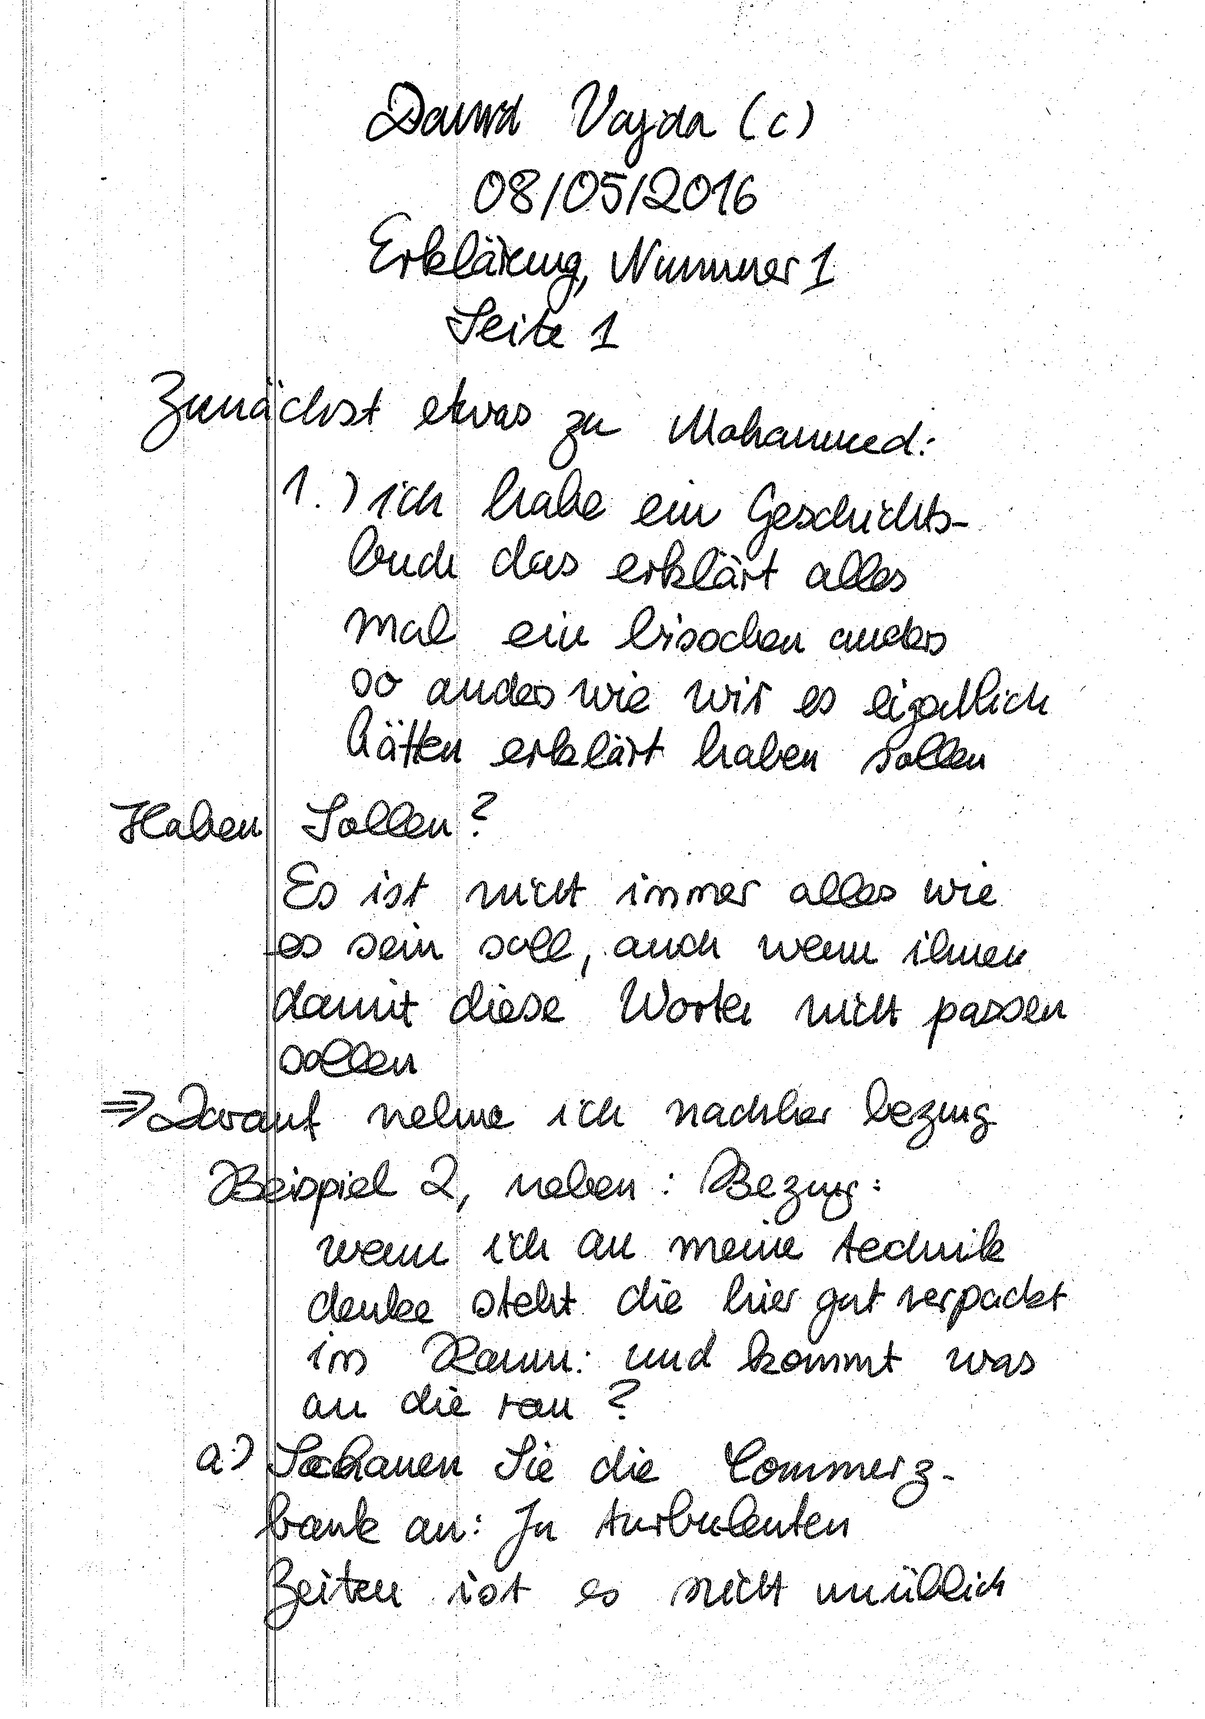 David Vajda (c)
08/05/2016
Erklärung, Nummer 1
Seite 1
Zunächst etwas zu Mohammed:
1.) ich habe ein Geschichts-
buch das erklärt alles
mal ein bisschen anders
so anders wie wir es eigentlich
hätten erklärt haben sollen
Haben Sollen?
Es ist nicht immer alles wie
es sein soll, auch wenn ihnen
damit diese Worte nicht passen
sollen
⇒ Darauf nehme ich nachher bezug
Beispiel 2, neben: Bezug:
wenn ich an meine technik
denke steht die hier gut verpackt
im Raum: und kommt was
an die ran?
a:) Schauen Sie die Commerz-
bank an: In turbulenten
Zeiten ist es nicht unüblich